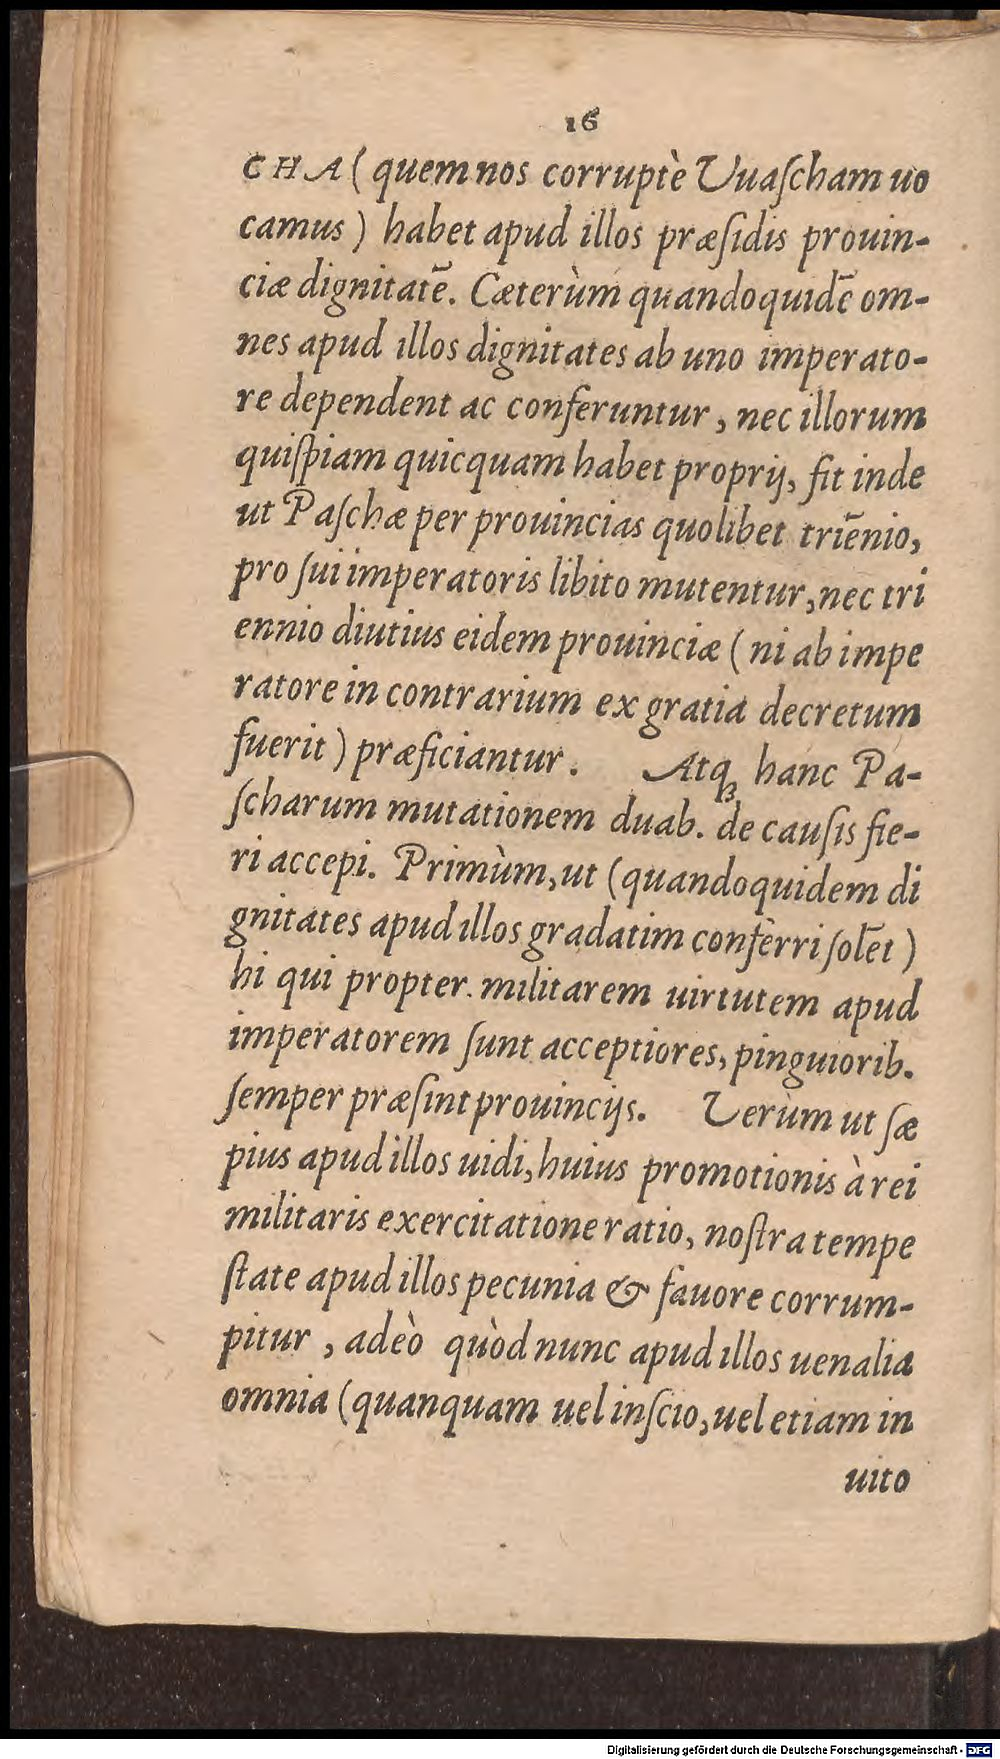 16
CHA (quem nos corruptè Vuaſcham uo
camus) habet apud illos præſidis prouin-
ciæ dignitatē. Cæterùm quandoquidē om-
nes apud illos dignitates ab uno imperato-
re dependent ac conferuntur, nec illorum
quiſpiam quicquam habet proprij, fit inde
ut Paſchæ per prouincias quolibet triēnio,
pro ſui imperatoris libito mutentur, nec tri
ennio diutius eidem prouinciæ (ni ab impe
ratore in contrarium ex gratia decretum
fuerit) præficiantur. Atqꝫ hanc Pa-
ſcharum mutationem duab. de cauſis fie-
ri accepi. Primùm, ut (quandoquidem di
gnitates apud illos gradatim conferri ſolēt)
hi qui propter militarem uirtutem apud
imperatorem ſunt acceptiores, pinguiorib.
ſemper præſint prouincijs. Verùm ut ſæ
pius apud illos uidi, huius promotionis à rei
militaris exercitatione ratio, noſtra tempe
ſtate apud illos pecunia & fauore corrum-
pitur, adeò quòd nunc apud illos uenalia
omnia (quanquam uel inſcio, uel etiam in
uito
Digitalisierung gefördert durch die Deutsche Forschungsgemeinschaft - DFG